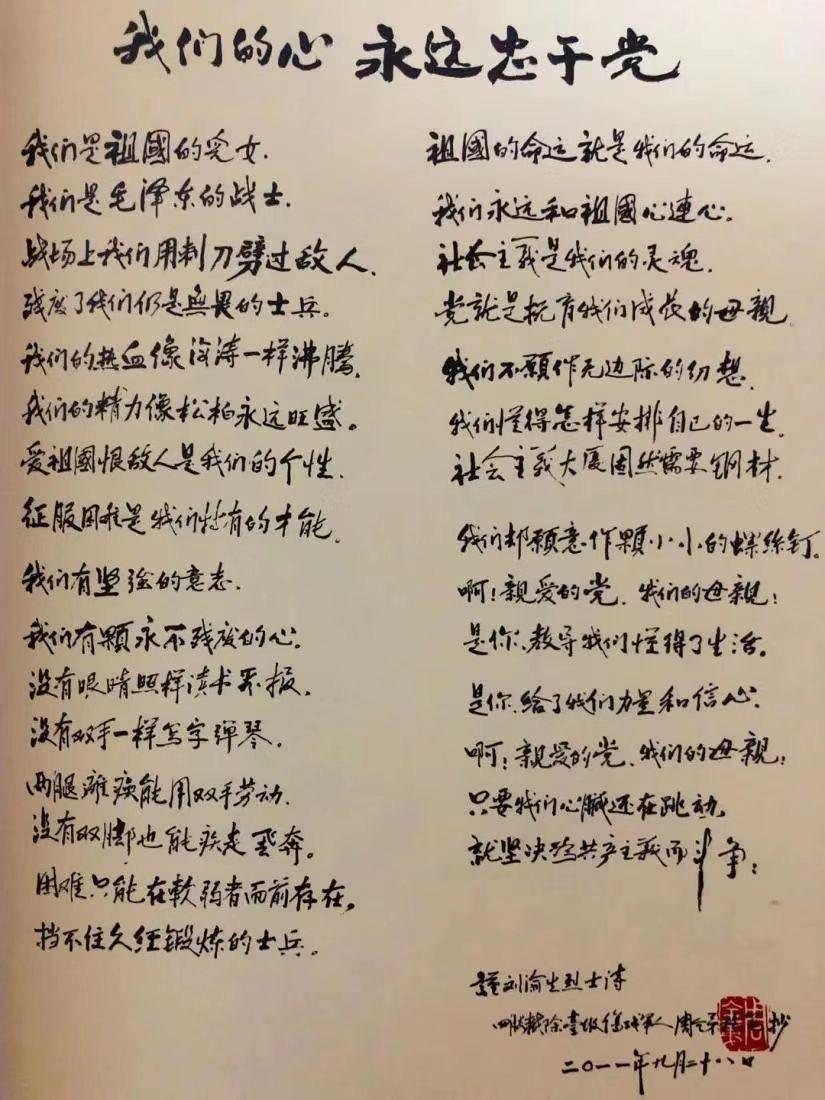 我们的心 永远忠于党
我们是祖國的児女.
我们是毛泽东的战士.
战场上我们用刺刀劈过敌人.
残废了我们仍是無畏的士兵。
我们的热血像涛一样沸騰.
我们的精力像松柏永远旺盛。
爱祖國恨敌人是我们的个性.
征服困难是我们特有的才能.
我们有坚强的意志.
我们有顆永不残废的心.
没有眼睛照样读书看报.
没有双手一样写字弹琴.
两腿瘫痪能用双手劳动.
没有双脚也能疾走飛奔。
困难只能在軟弱者面前存在.
挡不住久经鍛炼的士兵.
祖國的命运就是我们的命运.
我们永远和祖國心連心。
社会主義是我们的灵魂.
党就是抚育我们成长的母親
我们不願作无边际的幻想.
我们懂得怎样安排自己的一生.
社会主義大厦固然需要钢材.
我们却願意作顆小小的螺絲钉.
啊!親爱的党.我们的母親!
是你.教导我们懂得了生活。
是你.给了我们力量和信心.
啊!親爱的党.我们的母親!
只要我们心臓还在跳动.
就坚决为共产主義而斗争!
刘渝生烈士诗
抄
二〇一一年九月二十八日